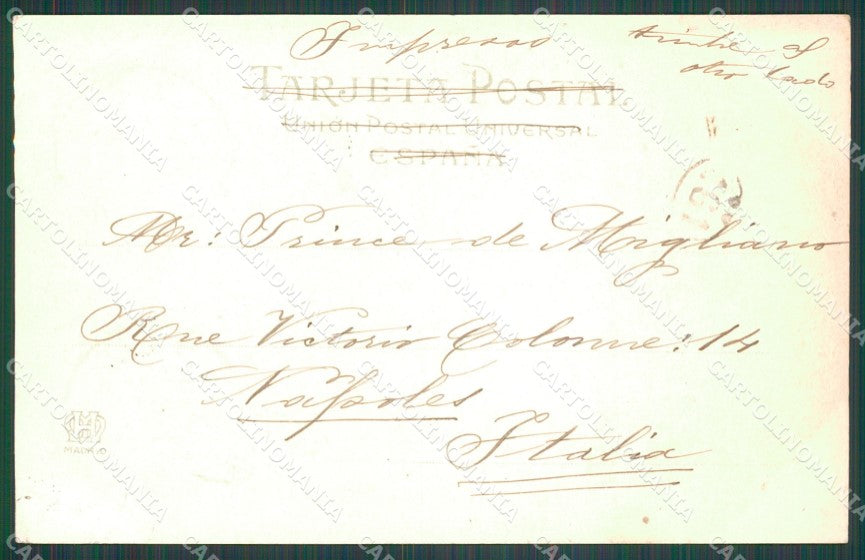 Impresos
timbre al
otro lado
TARJETA POSTAL
UNIÓN POSTAL UNIVERSAL
ESPAÑA
Mr: Prince de Migliano
Rue Victorio Colonne: 14
Napoles
Italia
MADRID
CARTOLINOMANIA